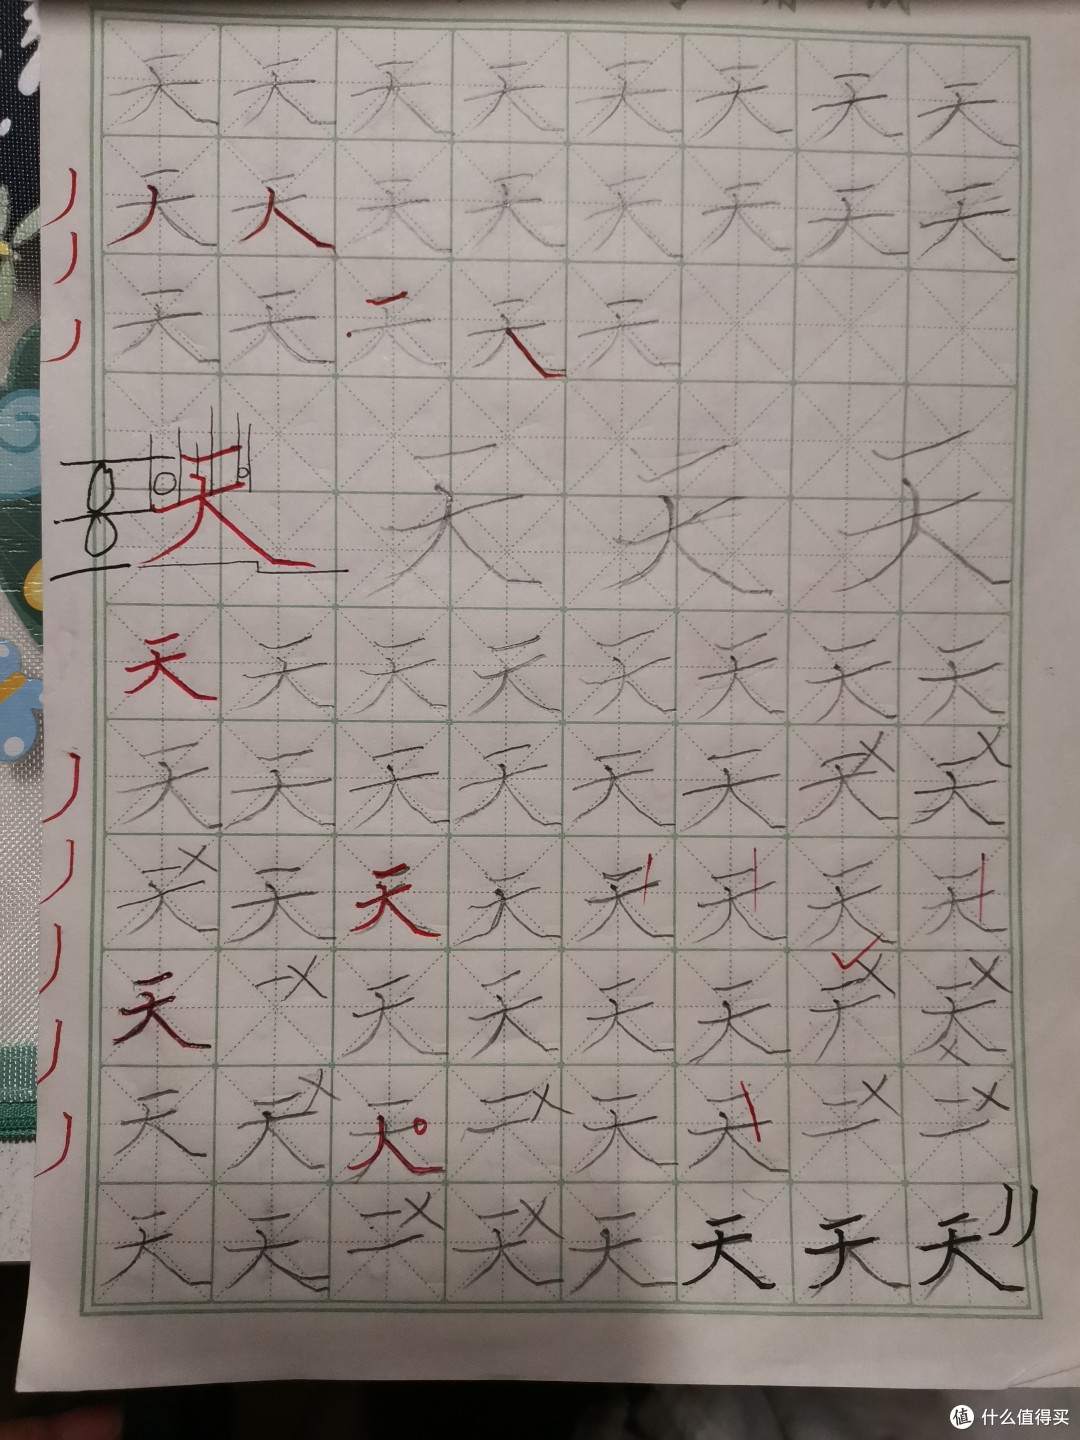 天天天天天天天天
天天天天天天天天
天天天天天
天天天天
天天天天天天天天
天天天天天天天天
天天天天天天天天
天天天天天天
天天天天天
天天天天天天天
值 什么值得买